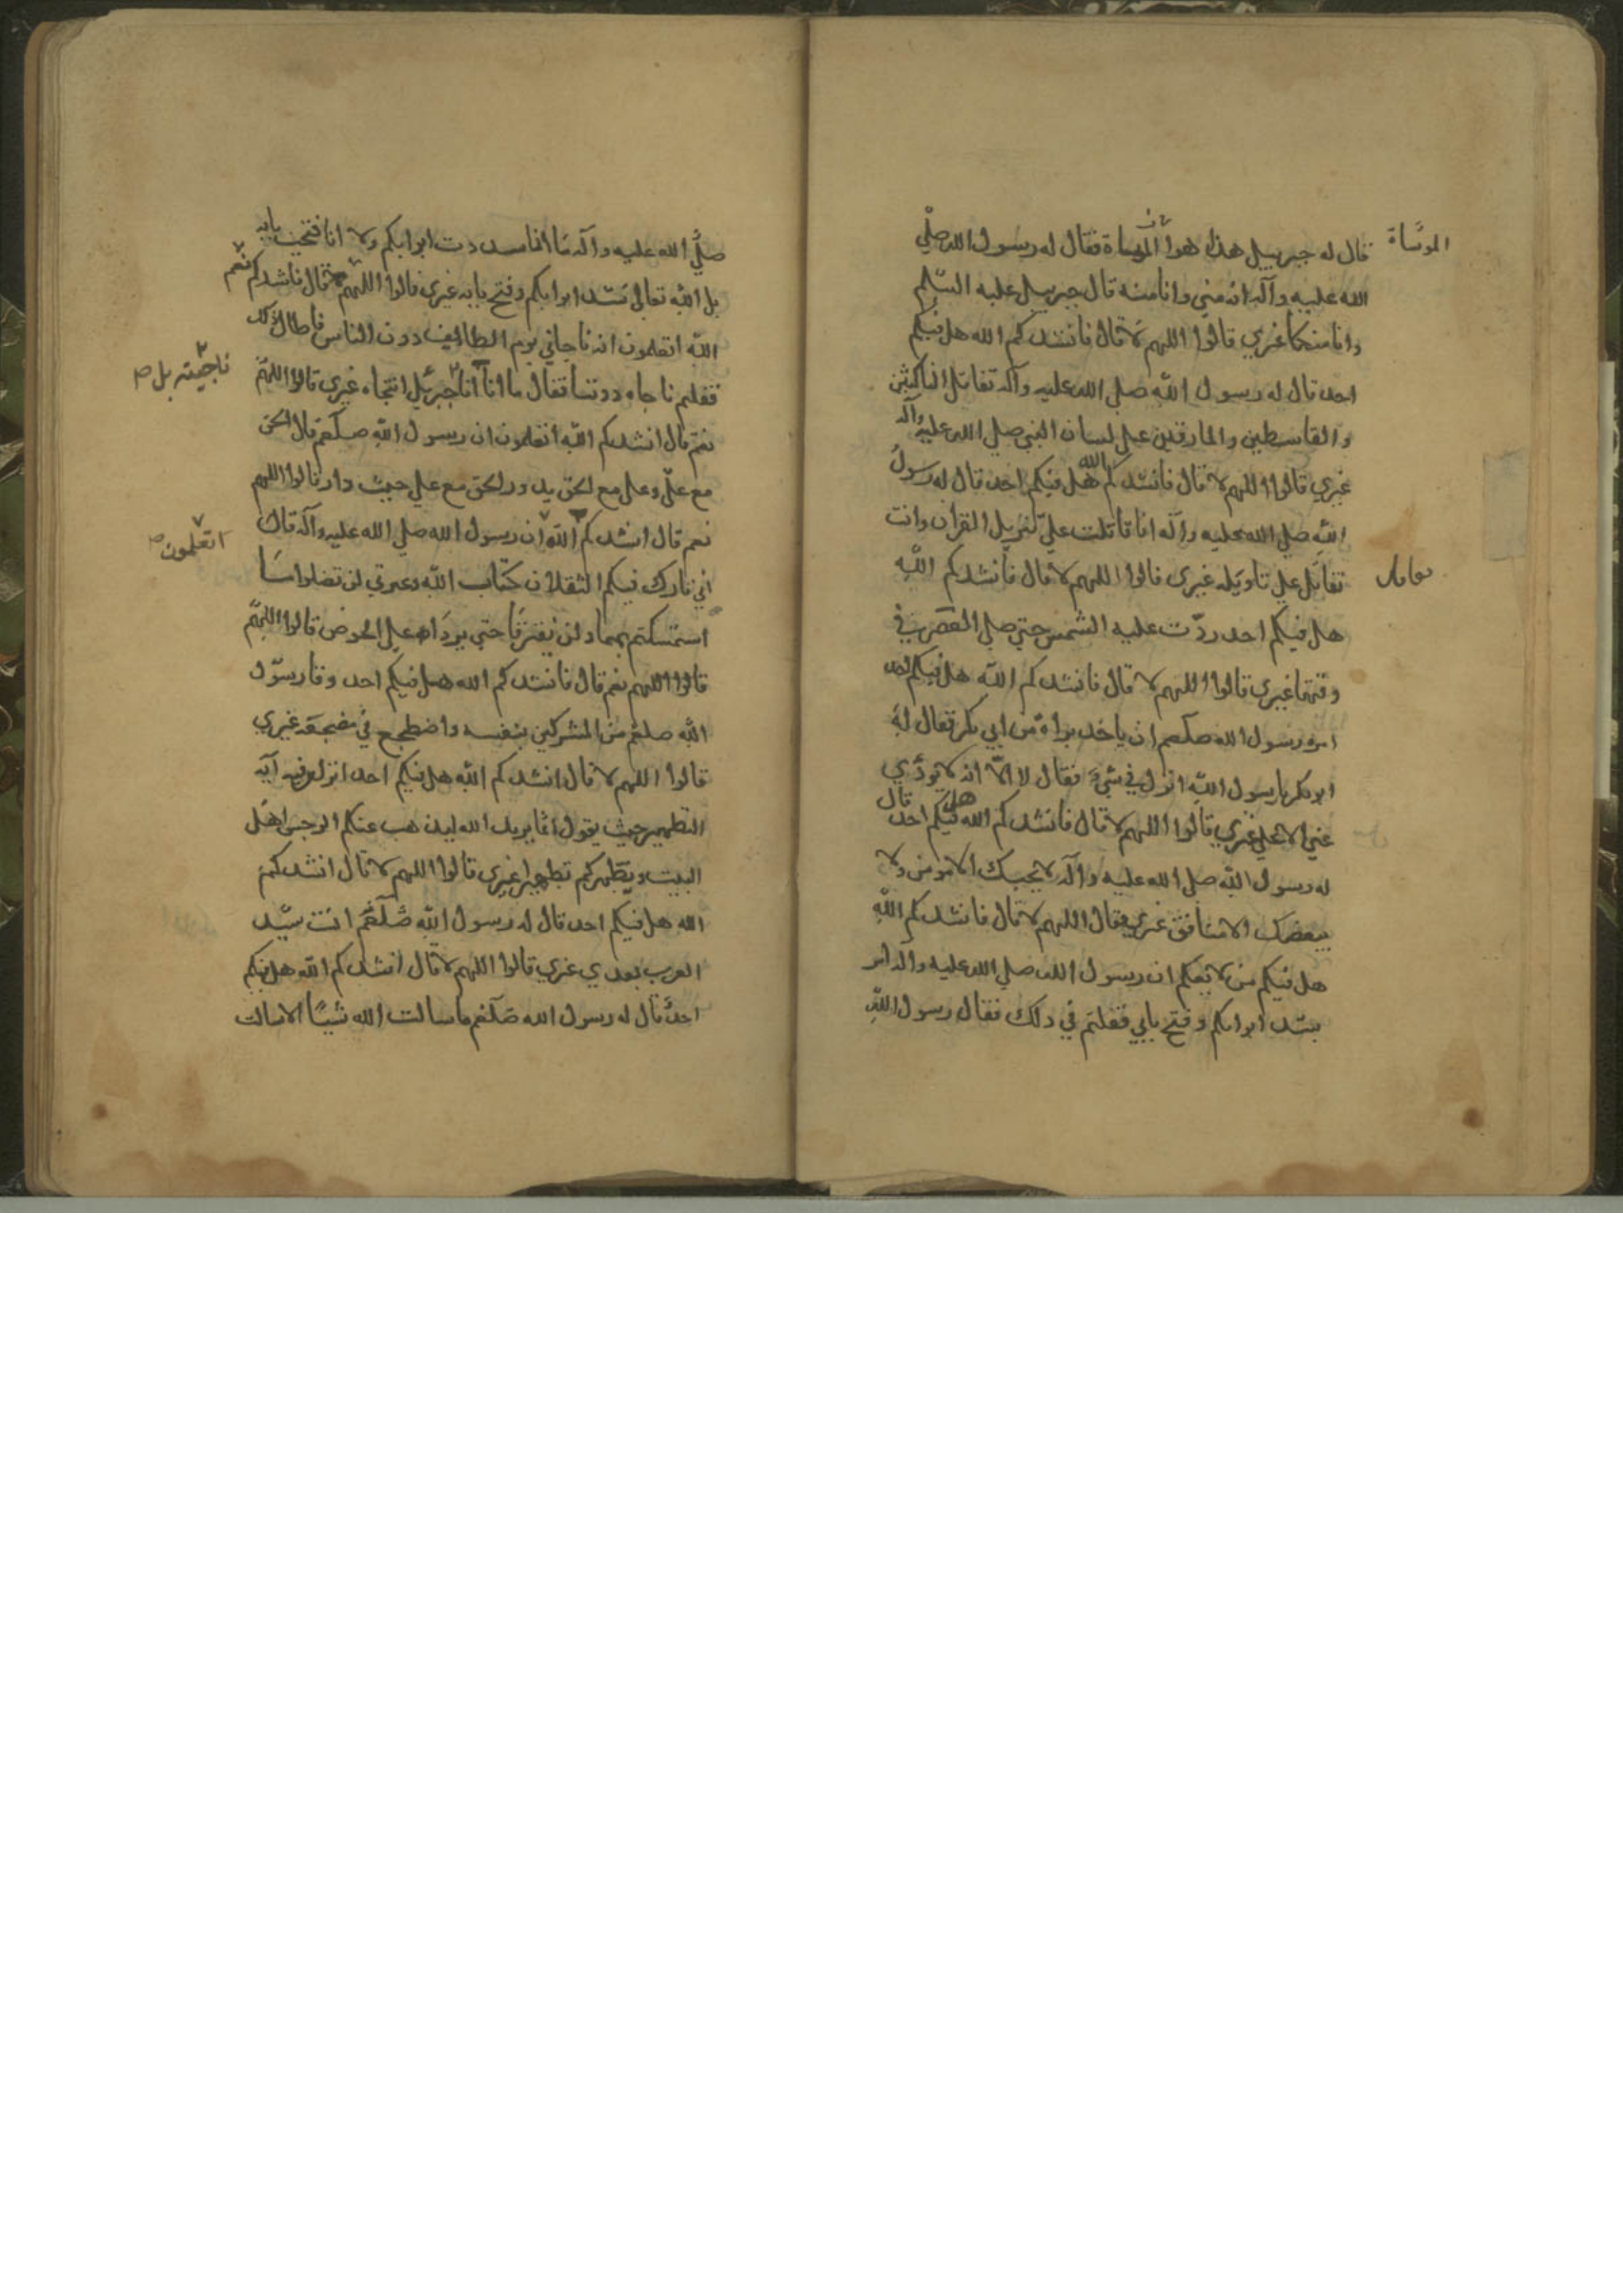 قال له جبرييل هذا هوا المواساة فقال له رسول الله صلي
المؤساة
الله عليه وآله انه مني وانا منه قال جبرييل عليه السلم
وانا منكما غيري قالوا اللهم لا قال فانشدكم الله هل فيكم
احد قال له رسول الله صلي الله عليه وآله تقاتل الناكثين
والقاسطين والمارقين علي لسان النبي صلي الله عليه وآله
غيري قالوا اللهم لا قال فانشدكم الله هل فيكم احد قال له رسول
الله صلي الله عليه وآله انا قاتلت علي تنزيل القران وانت
تقاتل علي تاويله غيري قالوا اللهم لا قال فانشدكم الله
هل فيكم احد ردّت عليه الشمس حتي صلي العصر في
وقتها غيري قالوا اللهم لا قال فانشدكم الله هل فيكم احد
امره رسول الله صلعم ان ياخذ براة من ابي بكر فقال له
ابو بكر يا رسول الله انزل في شيء فقال لا الا انه لا يودي
عني الا علي غيري قالوا اللهم لا قال فانشدكم الله هل فيكم احد قال
له رسول الله صلي الله عليه وآله لا يحبك الا مومن ولا
يبغضك الا منافق غيري فقال اللهم لا قال فانشدكم الله
هل فيكم من لا يعلم ان رسول الله صلي الله عليه وآله امر
بسد ابوابكم وفتح بابي فقلتم في ذلك فقال رسول الله
صلي الله عليه وآله ما انا سددت ابوابكم ولا انا فتحت بابه
بل الله تعالي سد ابوابكم وفتح بابه غيري قالوا اللهم نعم قال فانشدكم
الله اتعلمون انه ناجاني يوم الطايف دون الناس فاطال ذلك
فقلتم ناجاه دوننا فقال ما انا انا جبرئيل انتجاه غيري قالوا اللهم
ناجيته بل
نعم قال انشدكم الله أتعلمون ان رسول الله صلعم قال الحق
مع علي وعلي مع الحق يدور الحق مع علي حيث دار قالوا اللهم
نعم قال انشدكم الله ان رسول الله صلي الله عليه وآله قال
اتعلمون
اني تارك فيكم الثقلان كتاب الله وعترتي لن تضلوا ما
استمسكتم بهما ولن يفترقا حتي يردا علي الحوض قالوا اللهم
قالوا اللهم نعم قال فانشدكم الله هل فيكم احد وقا رسول
الله صلعم من المشركين بنفسه واضطجع في مضجعه غيري
قالوا اللهم لا قال انشدكم الله هل فيكم احد انزل فيه آية
التطهير حيث يقول انما يريد الله ليذهب عنكم الرجس اهل
البيت ويطهركم تطهيرا غيري قالوا اللهم لا قال انشدكم
الله هل فيكم احد قال له رسول الله صلعم انت سيد
العرب بعدي غيري قالوا اللهم لا قال انشدكم الله هل فيكم
احد قال له رسول الله صلعم ما سالت الله شيئا الا سالت